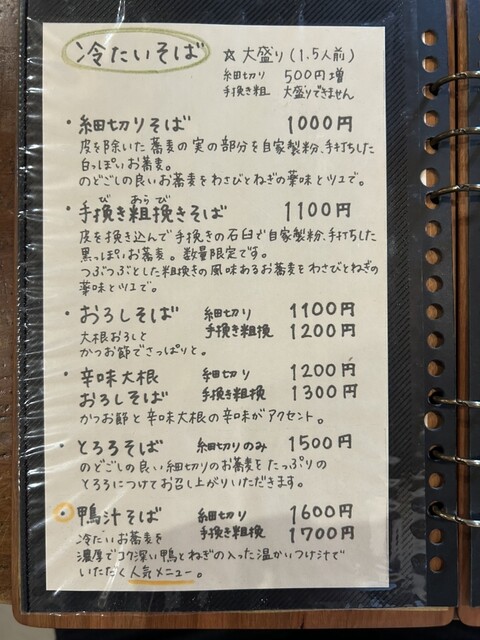 冷たいそば ☆大盛り(1.5人前)
細切り 500円増
手挽き粗 大盛りできません
・細切りそば 1000円
皮を除いた蕎麦の実の部分を自家製粉、手打ちした
白っぽいお蕎麦。
のどごしの良いお蕎麦をわさびとねぎの薬味とツユで。
び あらび
・手挽き粗挽きそば 1100円
皮を挽き込んで手挽きの石臼で自家製粉、手打ちした
黒っぽいお蕎麦。数量限定です。
つぶつぶとした粗挽きの風味あるお蕎麦をわさびとねぎの
薬味とツユで。
・おろしそば 細切り 1100円
大根おろしと 手挽き粗挽 1200円
かつお節でさっぱりと。
・辛味大根 細切り 1200円
おろしそば 手挽き粗挽 1300円
かつお節と辛味大根の辛味がアクセント。
・とろろそば 細切りのみ 1500円
のどごしの良い細切りのお蕎麦をたっぷりの
とろろにつけてお召し上がりいただきます。
・鴨汁そば 細切り 1600円
冷たいお蕎麦を 手挽き粗挽 1700円
濃厚でコク深い鴨とねぎの入った温かいつけ汁で
いただく人気メニュー。